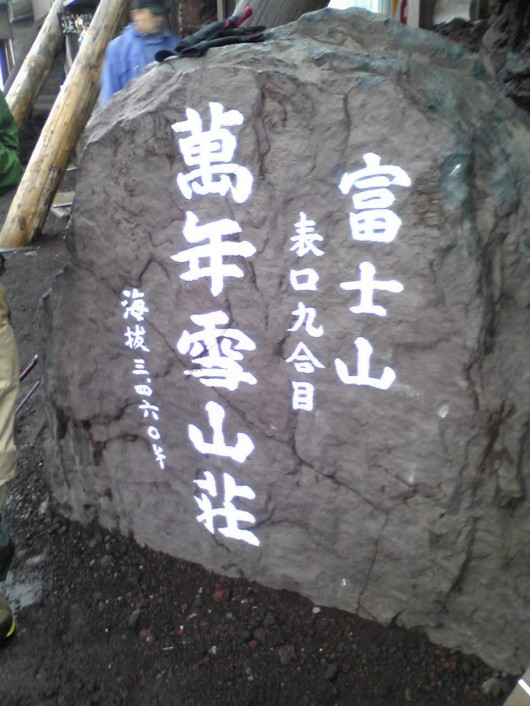 富士山
表口九合目
萬年雪山荘
海抜三、四六〇米